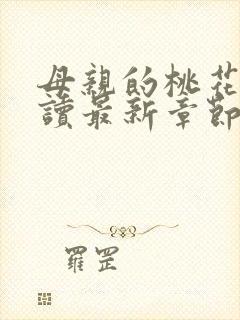 母親的桃花
讀最新章節
羅罡